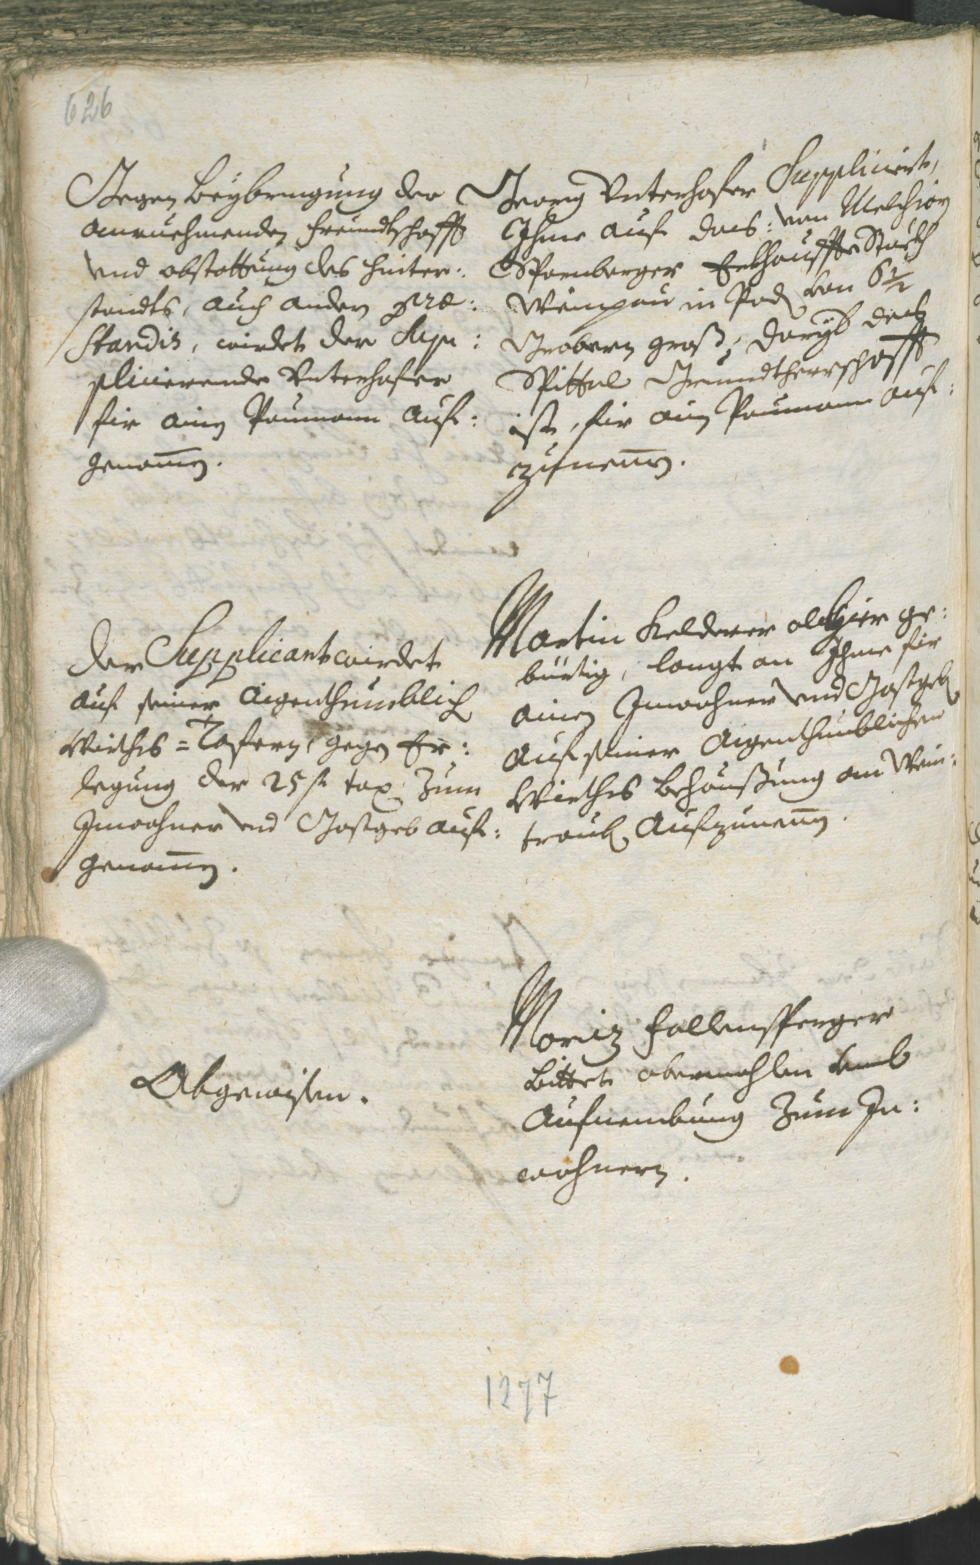 626
Gegen Beybringung der
anruehmenden Freündtschafft
vnd abstattung des hinter:
standts, auch anderen præ:
standis, wirdet der Sup:
plicierende Vnterhofer
fir ainen Paumann auf:
genomen.
Georg Vnterhofer Supplicirt,
Ihme auf das: von Melchior
Sparnberger Erkhauffte Stückh
Weingau in Pod von 6½
Grabern gross, daryb das
Spittal Grundtherrschafft
ist, fir ain Paumann auf:
zunemen.
Der Supplicant wirdet
auf seiner aigenthumblich
Wirths=Tafern, gegen Er:
legung der 25 f tax zum
Inwohner vnd Gastgeb auf:
genomen.
Martin Kelderer alhier ge:
bürtig, langt an Ihme fir
ainen Inwohner vnd Gastgeb
auf seiner aigenthumblichen
Wirths Behaußung am Wein:
traub aufzunemen.
Abgewisen.
Moriz Fallensperger
bittet abermahlen vmb
Aufnembung zum In:
wohnern.
1277